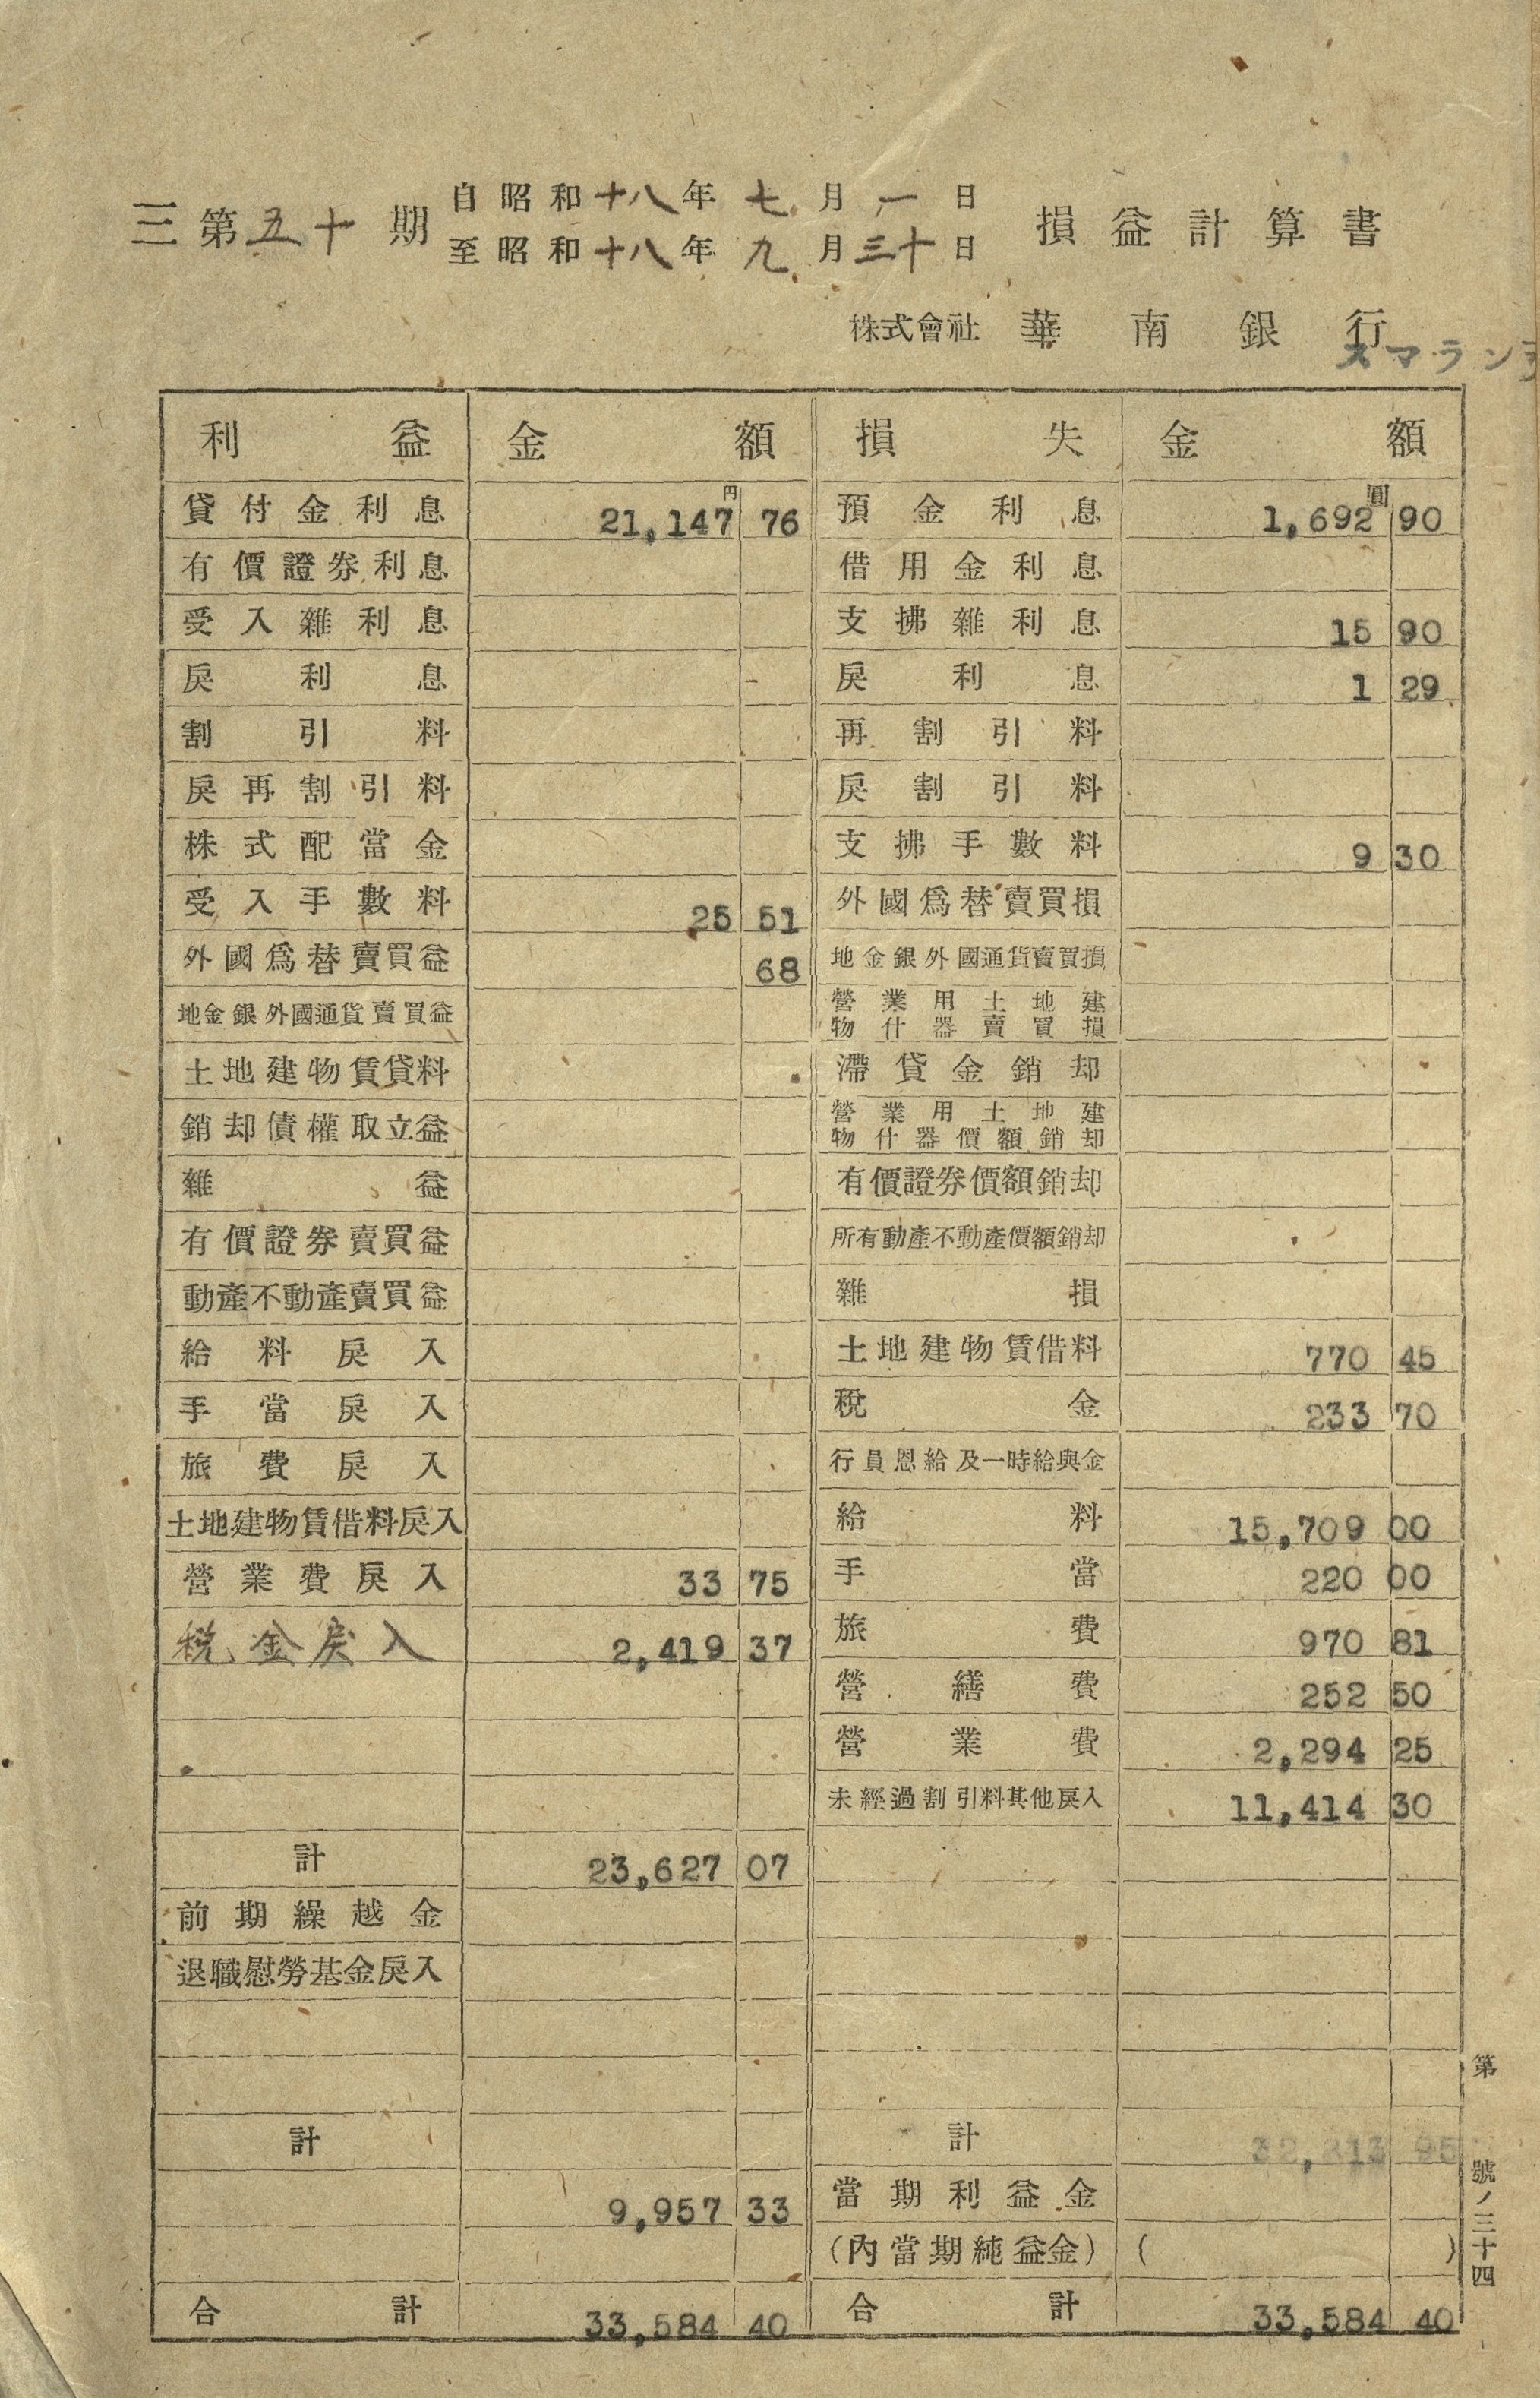 三 第五十期 自昭和十八年七月一日 損益計算書
至昭和十八年九月三十日
株式會社 華南銀行
スマラン
利益 金額 損失 金額
円 圓
貸付金利息 21,147 76 預金利息 1,692 90
有價證券利息 借用金利息
受入雜利息 支拂雜利息 15 90
戾利息 戾利息 1 29
割引料 再割引料
戾再割引料 戾割引料
株式配當金 支拂手數料 9 30
受入手數料 25 51 外國爲替賣買損
外國爲替賣買益 68 地金銀外國通貨賣買損
地金銀外國通貨賣買益 營業用土地建物什器賣買損
土地建物賃貸料 滯貸金銷却
銷却債權取立益 營業用土地建物什器價額銷却
雜益 有價證券價額銷却
有價證券賣買益 所有動產不動產價額銷却
動產不動產賣買益 雜損
給料戾入 土地建物賃借料 770 45
手當戾入 稅金 233 70
旅費戾入 行員恩給及一時給與金
土地建物賃借料戾入 給料 15,709 00
營業費戾入 33 75 手當 220 00
税金戾入 2,419 37 旅費 970 81
營繕費 252 50
營業費 2,294 25
未經過割引料其他戾入 11,414 30
計 23,627 07
前期繰越金
退職慰勞基金戾入
計 計
9,957 33 當期利益金
(內當期純益金) ( )
合計 33,584 40 合計 33,584 40
第 號ノ三十四